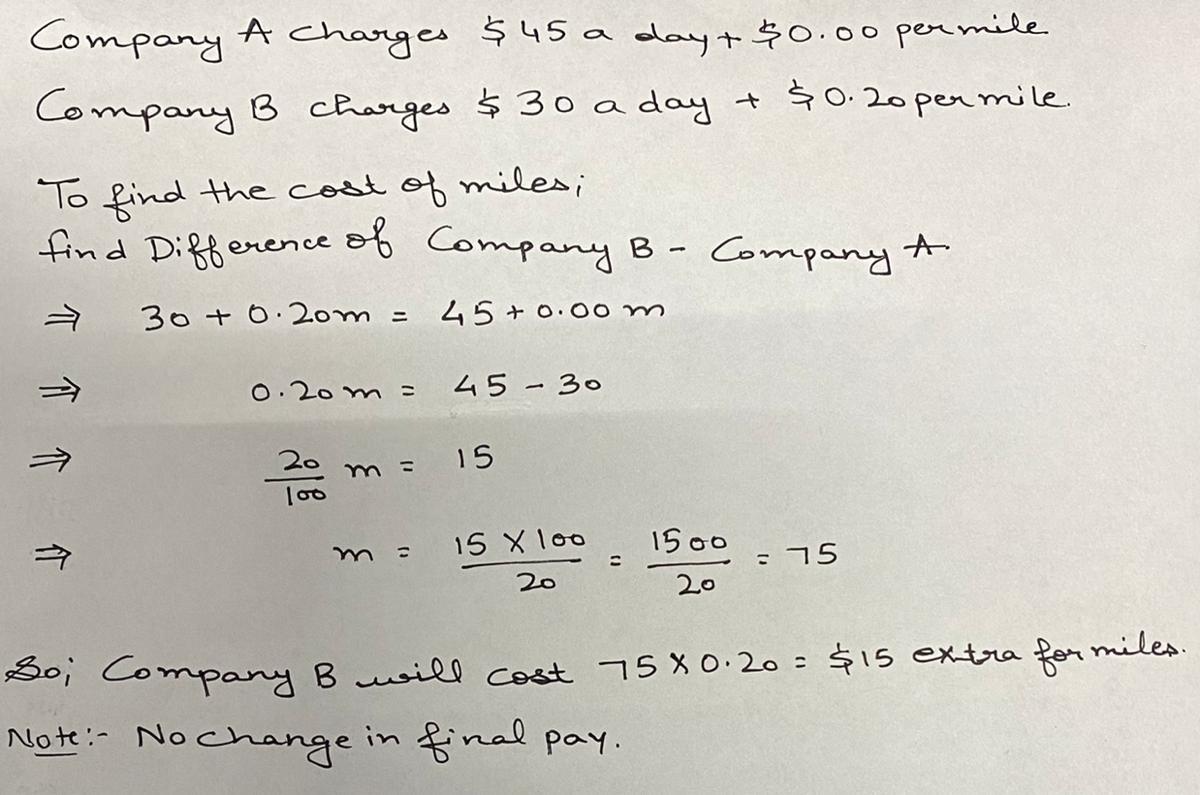 Company A charges $45 a day + $0.00 per mile
Company B charges $30 a day + $0.20 per mile.
To find the cost of miles;
find Difference of Company B - Company A.
⇒ 30 + 0.20m = 45 + 0.00 m
⇒ 0.20m = 45 - 30
⇒ 20/100 m = 15
⇒ m = 15 X 100/20 = 1500/20 = 75
So; Company B will cost 75 X 0.20 = $15 extra for miles.
Note:- No change in final pay.